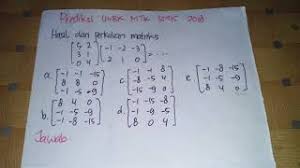 Prediksi UNBK MTK SMK 2018
Hasil dari perkalian matriks
[5 2] [-1 -2 -3]
[3 1] [2 1 0] = ....
[0 4]
a. [-1 -1 -15]
[8 8 0]
[-1 -5 -9]
b. [8 4 0]
[-1 -5 -9]
[-1 -8 -15]
c. [-1 -1 8]
[-8 -5 4]
[-15 -9 0]
d. [-1 -15 -8]
[-1 -9 -5]
[8 0 4]
e. [-1 -8 -15]
[-1 -5 -9]
[8 4 0]
Jawab